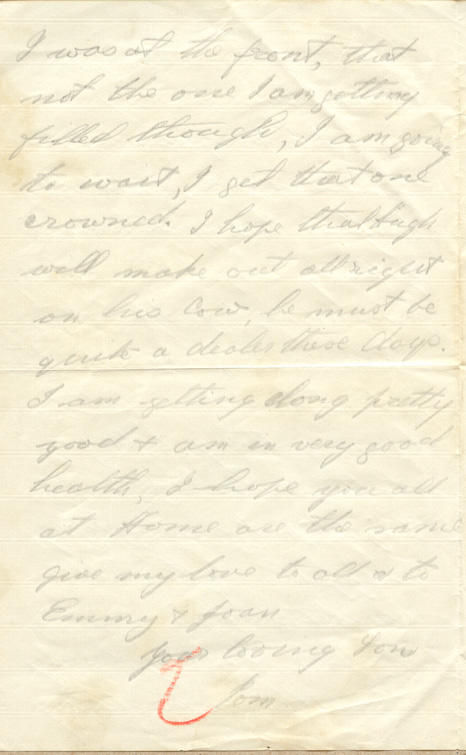 I was at the front, that
not the one I am getting
filled though, I am going
to wait, I get that one
crowned. I hope that Hugh
will make out all right
on his cow, he must be
quite a dealer these days.
I am getting along pretty
good & am in very good
health, I hope you all
at Home are the same
give my love to all & to
Emmy & Joan
Your loving Son
Tom